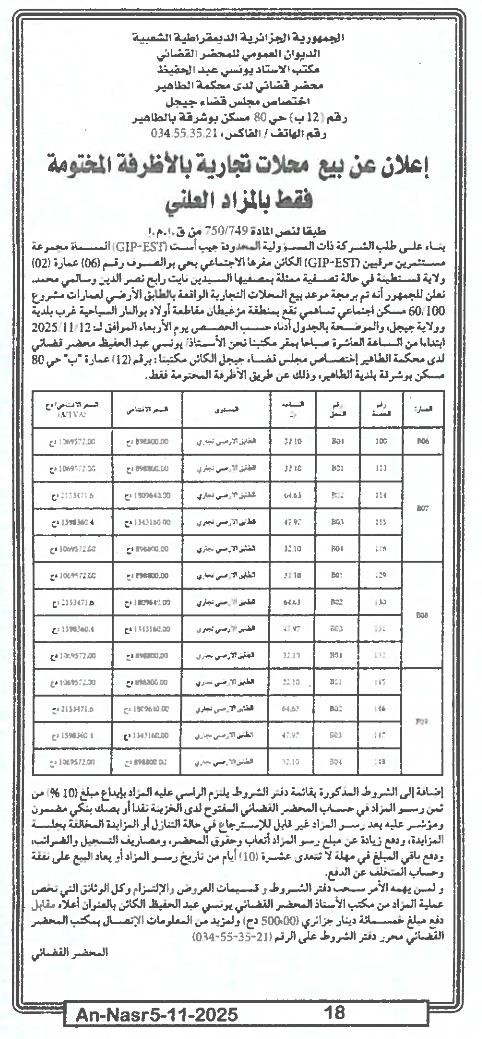 الجمهورية الجزائرية الديمقراطية الشعبية
الديوان العمومي للمحضر القضائي
مكتب الاستاذ يونسي عبد الحفيظ
محضر قضائي لدى محكمة الطاهير
اختصاص مجلس قضاء جيجل
رقم (12 ب) حي 80 مسكن بوشرقة بالطاهير
رقم الهاتف/ الفاكس: 034.55.35.21
إعلان عن بيع محلات تجارية بالأظرفة المختومة
فقط بالمزاد العلني
طبقا لنص المادة 750/749 من ق.إ.م.إ
بناء على طلب الشركة ذات المسؤولية المحدودة جيب أست (GIP-EST) المسماة مجموعة
مستثمرين مرقيين (GIP-EST) الكائن مقرها الاجتماعي بحي بوالصوف رقم (06) عمارة (02)
ولاية قسنطينة في حالة تصفية ممثلة بمصفيها السيدين نايت رابح نصر الدين وسالمي محمد.
نعلن للجمهور أنه تم برمجة موعد بيع المحلات التجارية الواقعة بالطابق الأرضي لعمارات مشروع
60/100 مسكن اجتماعي تساهمي تقع بمنطقة مزغيطان مقاطعة أولاد بوالنار السياحية غرب بلدية
وولاية جيجل، والموضحة بالجدول أدناه حسب الحصص يوم الأربعاء الموافق لـ: 2025/11/12
ابتداءا من الساعة العاشرة صباحا بمقر مكتبنا نحن الأستاذ/ يونسي عبد الحفيظ محضر قضائي
لدى محكمة الطاهير إختصاص مجلس قضاء جيجل الكائن مكتبنا: برقم (12) عمارة "ب" حي 80
مسكن بوشرقة بلدية الطاهير، وذلك عن طريق الأظرفة المختومة فقط.
العمارة رقم الحصة رقم المحل المساحة م2 المستوى السعر الافتتاحي السعر الافتتاحي دج (A/TVA)
B06 100 B04 32.10 الطابق الأرضي تجاري 898800.00 دج 1069572.00 دج
B07
B01 32.10 الطابق الأرضي تجاري 898800.00 دج 1069572.00 دج
114 B02 64.63 الطابق الأرضي تجاري 1809640.00 دج 2153471.6 دج
115 B03 47.97 الطابق الأرضي تجاري 1343160.00 دج 1598360.4 دج
116 B04 32.10 الطابق الأرضي تجاري 898800.00 دج 1069572.00 دج
B08
129 B01 32.10 الطابق الأرضي تجاري 898800.00 دج 1069572.00 دج
130 B02 64.63 الطابق الأرضي تجاري 1809640.00 دج 2153471.6 دج
B03 47.97 الطابق الأرضي تجاري 1343160.00 دج 1598360.4 دج
132 B04 32.10 الطابق الأرضي تجاري 898800.00 دج 1069572.00 دج
B09
145 B01 32.10 الطابق الأرضي تجاري 898800.00 دج 1069572.00 دج
146 B02 64.63 الطابق الأرضي تجاري 1809640.00 دج 2153471.6 دج
147 B03 47.97 الطابق الأرضي تجاري 1343160.00 دج 1598360.4 دج
148 B04 32.10 الطابق الأرضي تجاري 898800.00 دج 1069572.00 دج
إضافة إلى الشروط المذكورة بقائمة دفتر الشروط يلتزم الراسي عليه المزاد بإيداع مبلغ (10 %) من
ثمن رسو المزاد في حساب المحضر القضائي المفتوح لدى الخزينة نقدا أو بصك بنكي مضمون
ومؤشر عليه بعد رسو المزاد غير قابل للإسترجاع في حالة التنازل أو المزايدة المخالفة بجلسة
المزايدة، ودفع زيادة عن مبلغ رسو المزاد أتعاب وحقوق المحضر، ومصاريف التسجيل والضرائب،
ودفع باقي المبلغ في مهلة لا تتعدى عشرة (10) أيام من تاريخ رسو المزاد أو يعاد البيع على نفقة
وحساب المتخلف عن الدفع.
و لمن يهمه الأمر سحب دفتر الشروط و قسيمات العروض والإلتزام وكل الوثائق التي تخص
عملية المزاد من مكتب الأستاذ المحضر القضائي يونسي عبد الحفيظ الكائن بالعنوان أعلاه مقابل
دفع مبلغ خمسمائة دينار جزائري (500.00 دج) ولمزيد من المعلومات الإتصال بمكتب المحضر
القضائي محرر دفتر الشروط على الرقم (21-35-55-034)
المحضر القضائي
An-Nasr5-11-2025 18